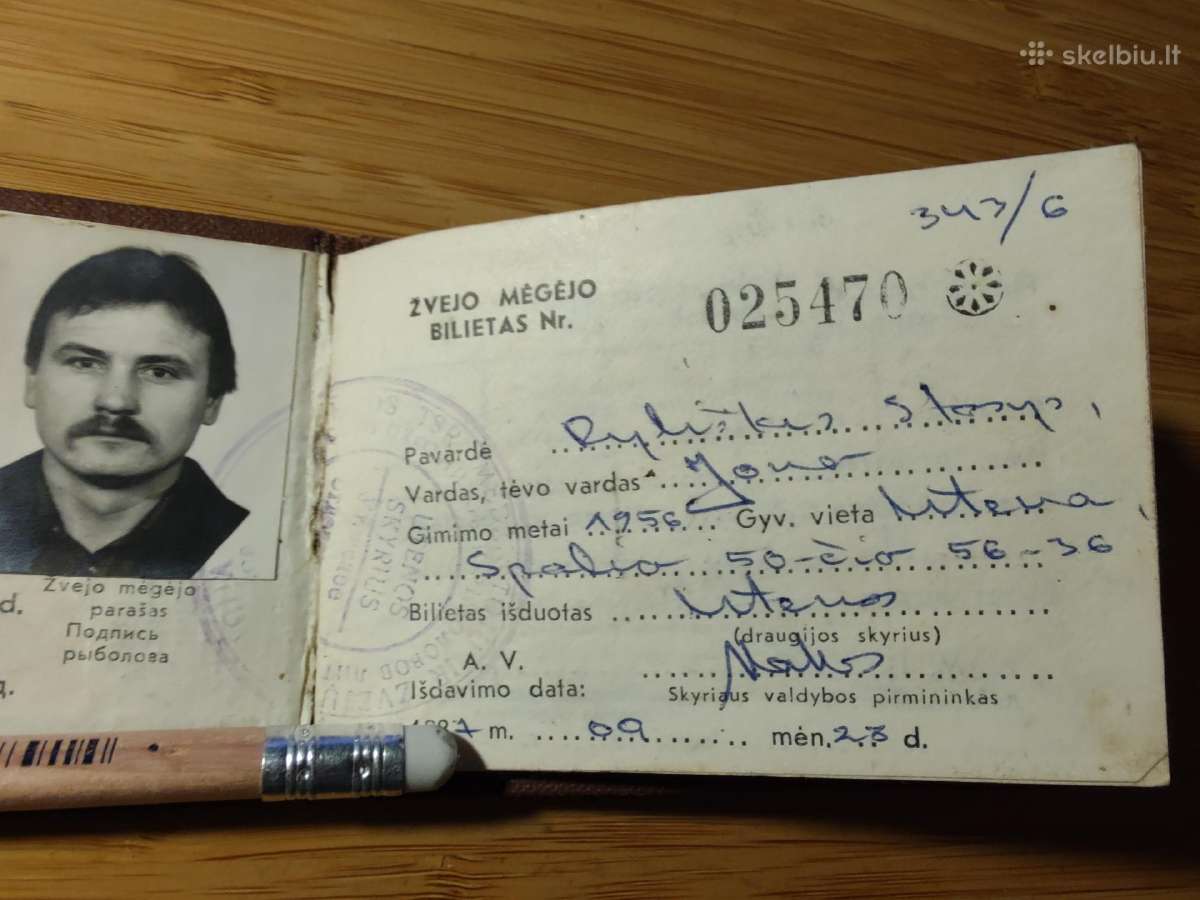 skelbiu.lt
343/6
ŽVEJO MĖGĖJO
BILIETAS Nr. 025470
Pavardė Ryliškis Stasys,
Vardas, tėvo vardas Jono
Gimimo metai 1956 Gyv. vieta Utena,
Spalio 50-čio 56-36
Bilietas išduotas Utenos
(draugijos skyrius)
A. V.
Skyriaus valdybos pirmininkas
Išdavimo data:
7 m. 09 mėn. 23 d.
Žvejo mėgėjo
parašas
Подпись
рыболова
d.
UTENOS
SKYRIUS